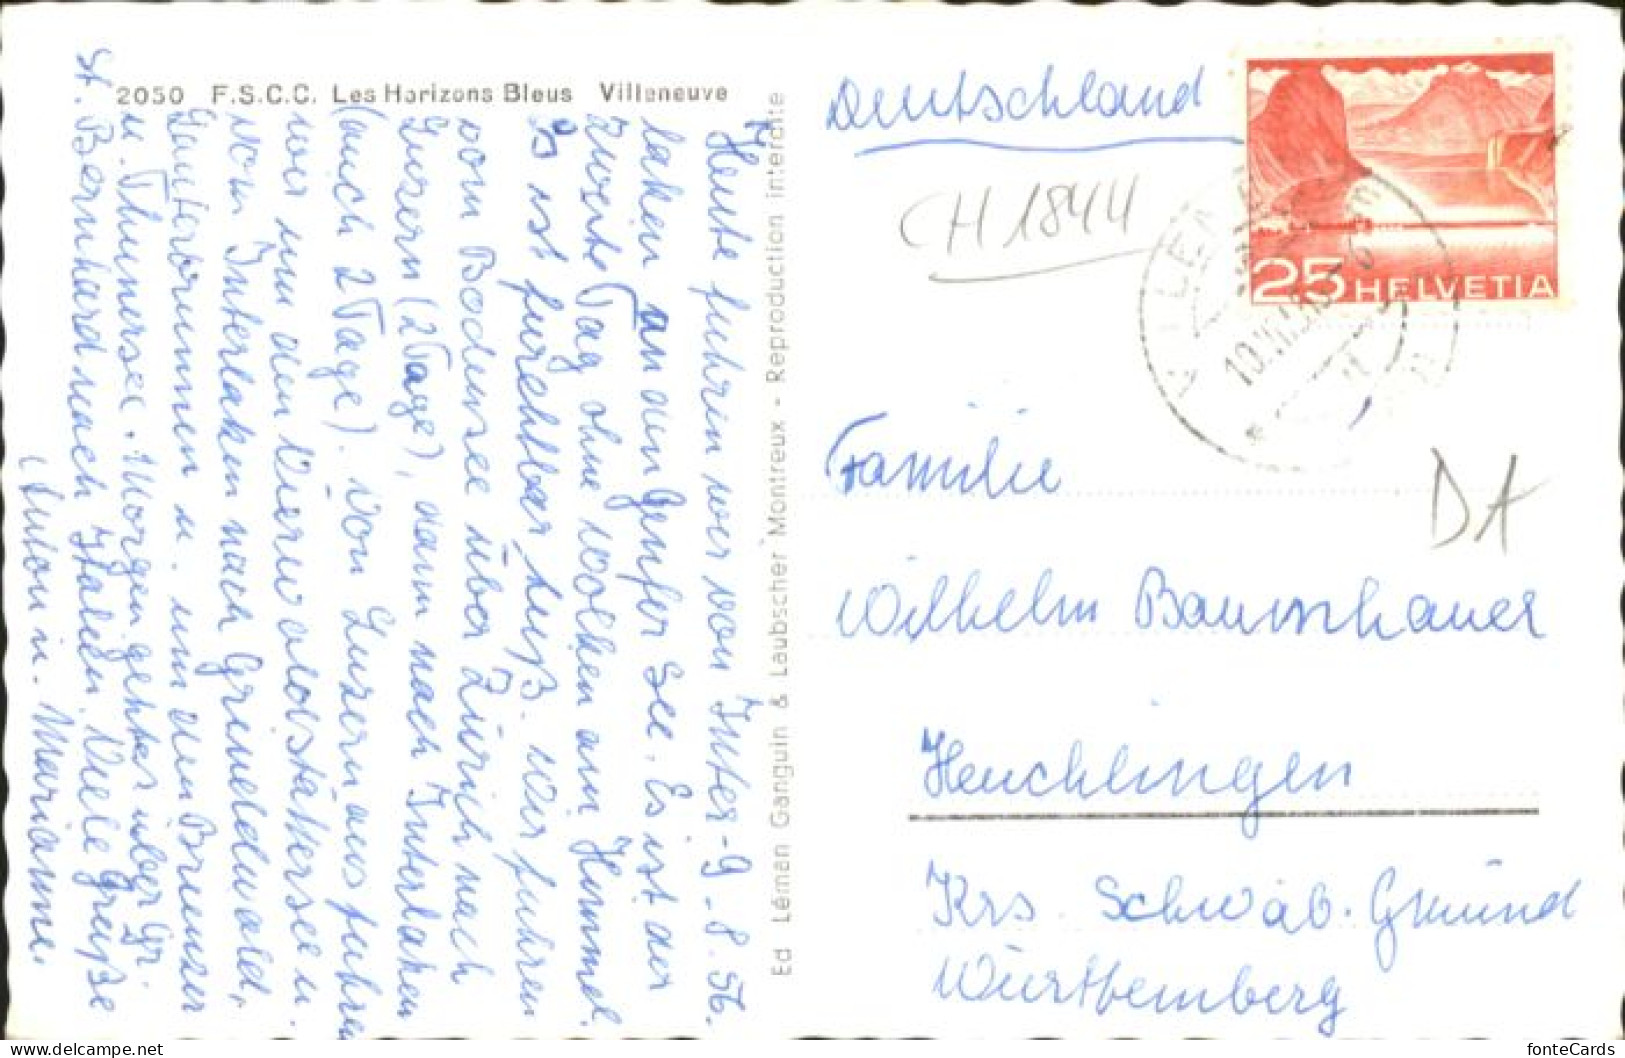 2050 F.S.C.C. Les Horizons Bleus Villeneuve
9.8.56.
Heute fuhren wir von Inter-
laken an den Genfer See. Es ist der
zweite Tag ohne Wolken am Himmel.
Es ist furchtbar heiß. Wir fuhren
vom Bodensee über Zürich nach
Luzern (2 Tage), dann nach Interlaken
(auch 2 Tage). Von Luzern aus fuhren
wir um den Vierwaldstättersee u.
von Interlaken nach Grindelwald,
Lauterbrunnen u. um den Brienzer
u. Thunersee. Morgen geht es über Gr.
St. Bernhard nach Italien. Viele Grüße
Anton u. Marianne.
Ed Léman Ganguin & Laubscher Montreux - Reproduction interdite
Deutschland
CH 1844
25 HELVETIA
Familie
DA
Wilhelm Baumhauer
Heuchlingen
Krs. Schwäb. Gmünd
Württemberg
fonteCards